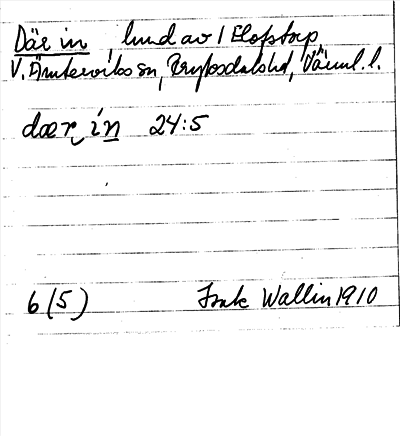 Där in, lund av 1 Elofstorp
V. Ämterviks sn, Fryksdals hd, Värml. l.
dær in 24:5
6 (5) Frule Wallin 1910